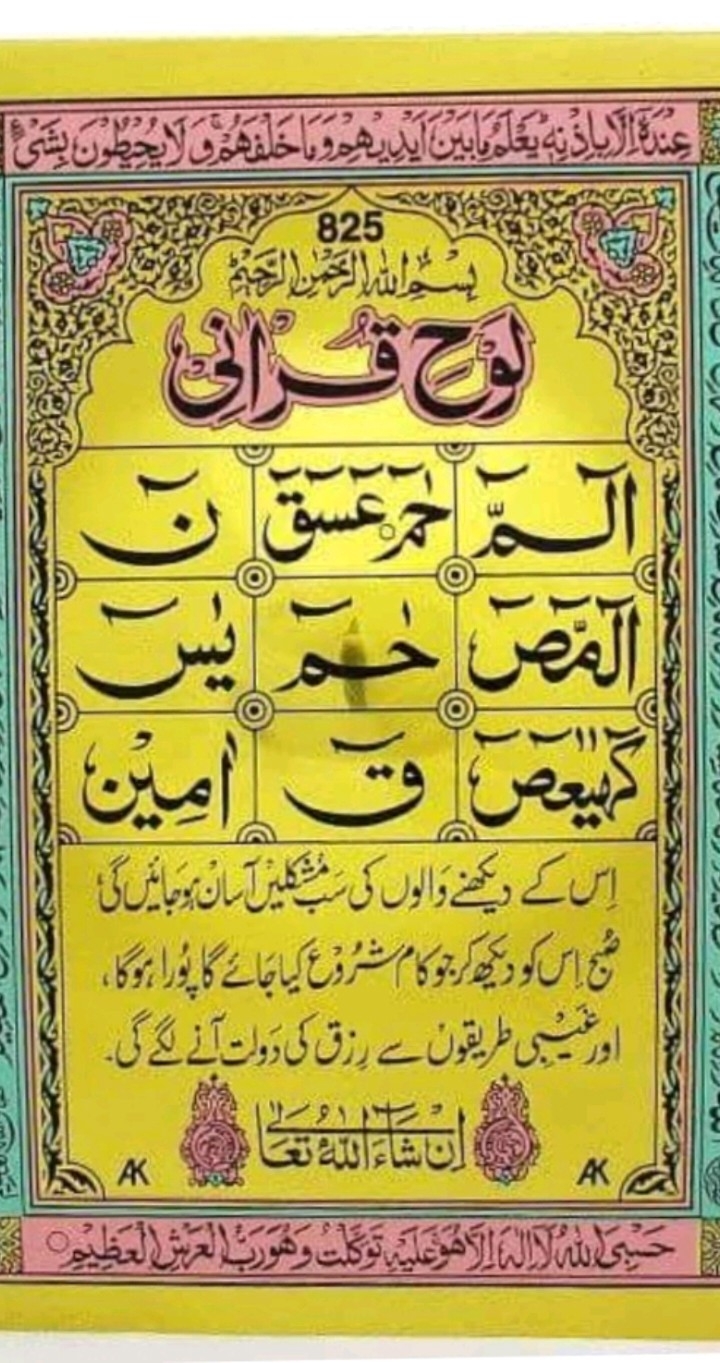 عِندَهٗٓ اِلَّا بِاِذْنِهٖ يَعْلَمُ مَا بَيْنَ اَيْدِيْهِمْ وَمَا خَلْفَهُمْ وَلَا يُحِيْطُوْنَ بِشَیْءٍ
825
بِسْمِ اللهِ الرَّحْمٰنِ الرَّحِيْمِ
لَوحِ قُرآنی
الٓمّٓ حٰمٓ عٓسٓقٓ نٓ
الٓمّٓصٓ حٰمٓ يٰسٓ
كٓهٰيٰعٓصٓ قٓ اٰمِيْن
اِس کے دیکھنے والوں کی سَب مُشکلیں آسان ہوجائیں گی
صُبح اِس کو دیکھ کر جو کام شروع کیا جائے گا پُورا ہوگا،
اور غَیبی طریقوں سے رِزق کی دَولت آنے لگے گی۔
اِنْ شَآءَ اللّٰهُ تَعَالٰی
AK AK
حَسْبِیَ اللهُ لَا اِلٰهَ اِلَّا هُوَ عَلَيْهِ تَوَكَّلْتُ وَهُوَ رَبُّ الْعَرْشِ الْعَظِيْمِ